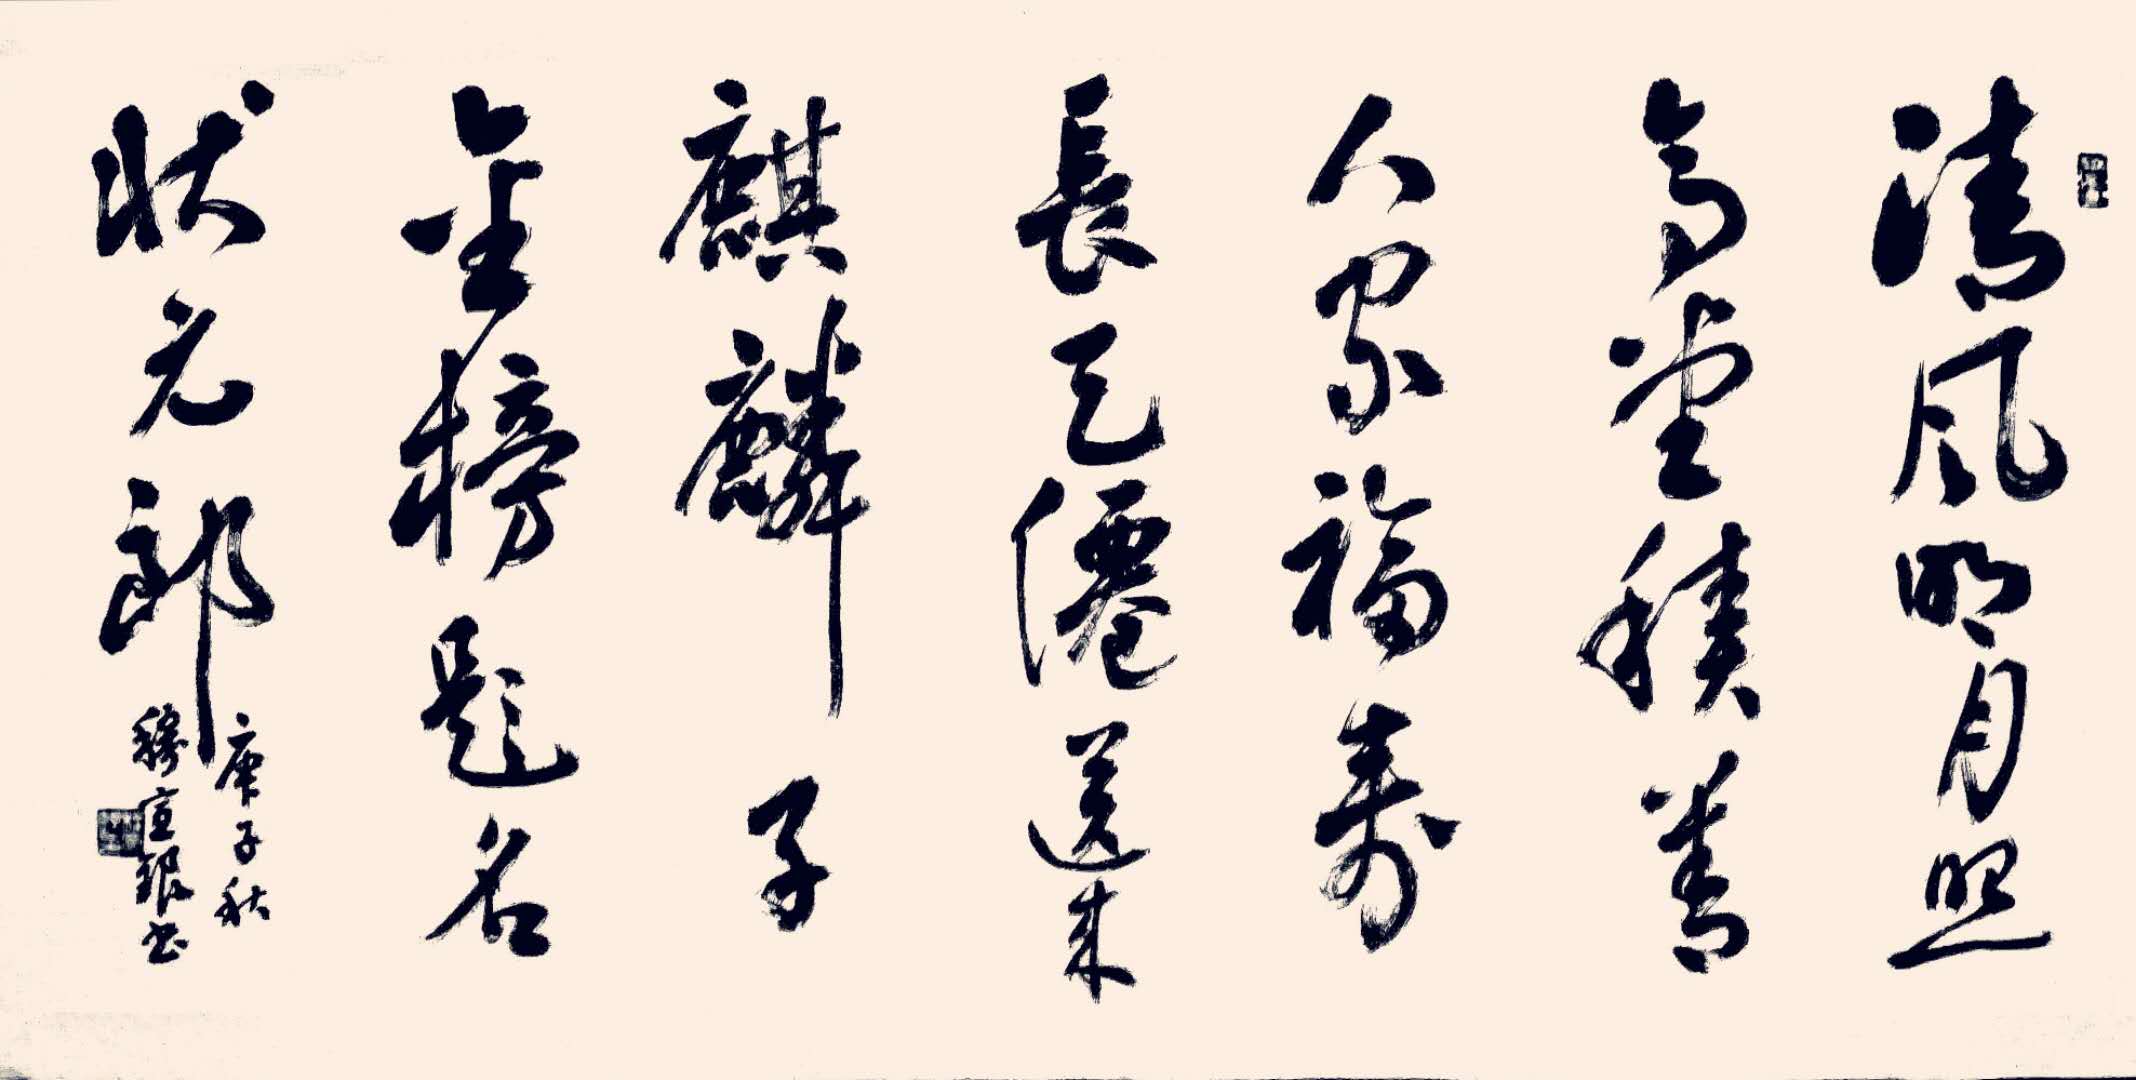 清風明月照
高堂積善
人家福壽
長天僊送來
麒麟子
金榜題名
狀元郎
庚子秋
穆宣銀書